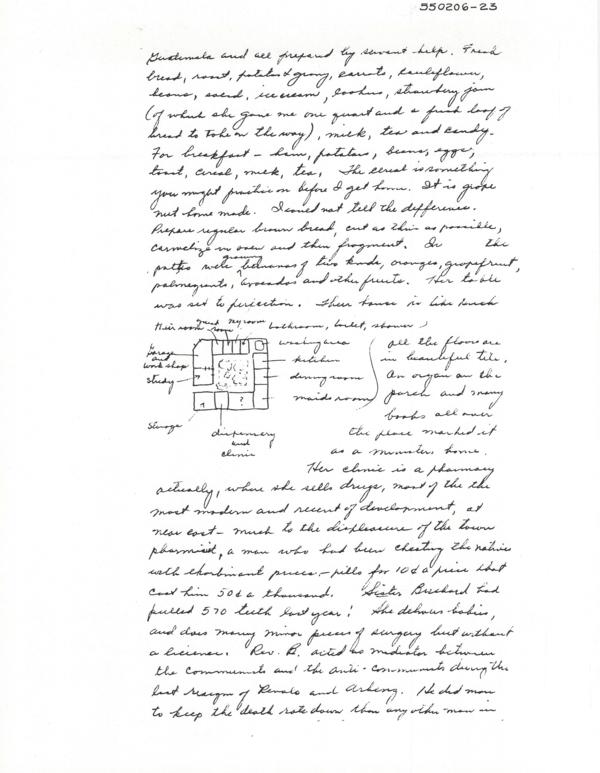 550206-23
Guatemala and all prepared by servant help. Fresh
bread, roast, potatoes & gravy, carrots, cauliflower,
beans, salad, ice cream, cookies, strawberry jam
(of which she gave me one quart and a fresh loaf of
bread to take on the way), milk, tea and candy.
For breakfast - ham, potatoes, beans, eggs,
toast, cereal, milk, tea. The cereal is something
you might practice on before I get home. It is grape
nut home made. I could not tell the difference.
Prepare regular brown bread, cut as thin as possible,
carmelize in oven and then fragment. In the
patio were growing bananas of two kinds, oranges, grapefruit,
avocados and other fruits. Her table
was set to perfection. Their house is like such
Their room guest room my room bathroom, toilet, shower
to garage and work shop
study
storage
dispensary and clinic
washing area
kitchen
dining room
maids room
?
all the floors are
in beautiful tile.
An organ on the
porch and many
books all over
the place marked it
as a ministers home.
Her clinic is a pharmacy
actually, where she sells drugs, most of the the
most modern and recent of development, at
near cost - much to the displeasure of the town
pharmisist, a man who had been cheating the natives
with exorbinant prices - pills for 10¢ a piece that
cost him 50¢ a thousand. Sister had
pulled 570 teeth last year! She delivers babies,
and does many minor pieces of surgery but without
a license. Rev. B. acted as mediator between
the communists and the anti-communists during the
last reign of and Arbenz. He did more
to keep the death rate down than any other man in